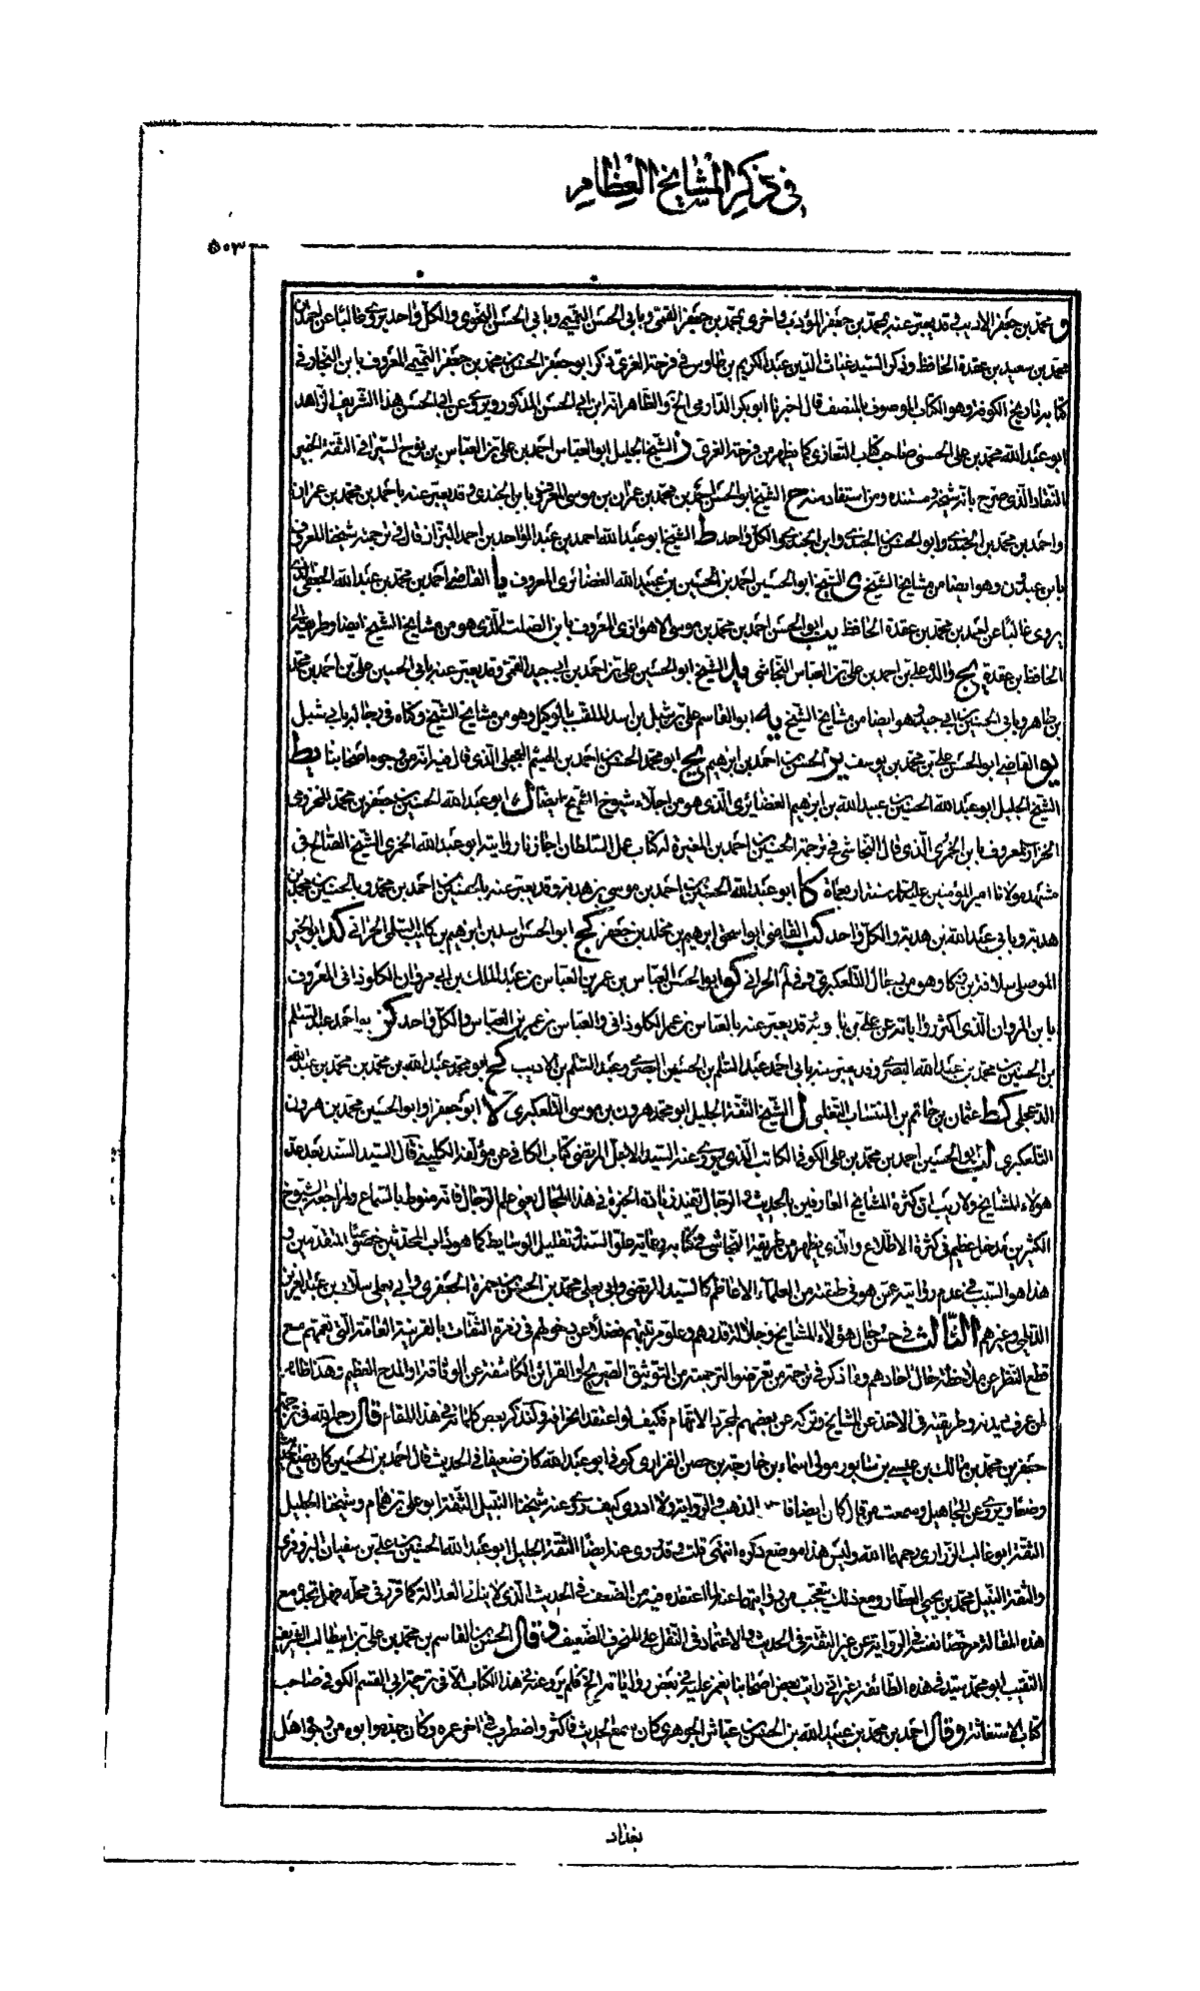 في ذكر المشايخ العظام
٥٠٣
و محمد بن جعفر الاديب وقد يعبر عنه بمحمد بن جعفر المؤدب واخرى بمحمد بن جعفر القمي وبابي الحسن التميمي وبابي الحسن النحوي والكل واحد يروي غالبا عن احمد بن
محمد بن سعيد بن عقدة الحافظ وذكر السيد غياث الدين عبد الكريم بن طاوس في فرحة الغري ذكر ابو جعفر الحسن بن محمد بن جعفر التميمي المعروف بابن النجار في
كتابه تاريخ الكوفة وهو الكتاب الموصوف بالمنصف قال اخبرنا ابو بكر الدارمي الخ والظاهر انه ابن ابي الحسن المذكور ويروي عن ابي الحسن هذا الشريف الزاهد
ابو عبد الله محمد بن علي الحسني صاحب كتاب التعازي كما يظهر من فرحة الغري ز الشيخ الجليل ابو العباس احمد بن علي بن العباس بن نوح السيرافي الثقة الخبير
النقاد الذي صرح بانه شيخه ومستنده ومن استفاد منه ح الشيخ ابو الحسن احمد بن محمد بن عمران بن موسى المعروف بابن الجندي وقد يعبر عنه باحمد بن محمد بن عمران
واحمد بن محمد بن الجندي وابو الحسن بن الجندي وابن الجندي والكل واحد ط الشيخ ابو عبد الله احمد بن عبد الواحد بن احمد البزاز قال في ترجمته شيخنا المعروف
بابن عبدون وهو ايضا من مشايخ الشيخ ي الشيخ ابو الحسين احمد بن الحسين بن عبيد الله الغضائري المعروف يا القاضي احمد بن محمد بن عبد الله الجعفي الذي
يروي غالبا عن احمد بن محمد بن عقدة الحافظ يب ابو الحسن احمد بن محمد بن موسى الاهوازي المعروف بابن الصلت الذي هو من مشايخ الشيخ ايضا وطريقه الى
الحافظ بن عقدة يج والده علي بن احمد بن علي بن العباس النجاشي يد الشيخ ابو الحسين علي بن احمد بن ابي جيد القمي وقد يعبر عنه بابي الحسين علي بن احمد بن محمد
بن طاهر وبابي الحسين بن ابي جيد وهو ايضا من مشايخ الشيخ يه ابو القاسم علي بن شبل بن اسد الملقب بالوكيل وهو من مشايخ الشيخ وكناه في رجاله بابي شبل
يو القاضي ابو الحسن علي بن محمد بن يوسف يز الحسن بن احمد بن ابرهيم يح ابو محمد الحسن بن احمد بن الهيثم العجلي الذي قال فيه انه من وجوه اصحابنا يط
الشيخ الجليل ابو عبد الله الحسين بن عبيد الله بن ابرهيم الغضائري الذي هو من اجلاء شيوخ الشيخ ايضا ك ابو عبد الله الحسين بن جعفر بن محمد المخزومي
الخزاز المعروف بابن الخمري الذي قال النجاشي في ترجمة الحسين بن احمد بن المغيرة له كتاب عمل السلطان اجازنا روايته ابو عبد الله الخمري الشيخ الصالح في
مشهد مولانا امير المؤمنين عليه السلام سنة اربعمائة كا ابو عبد الله الحسين بن احمد بن موسى بن هدية وقد يعبر عنه بالحسين بن احمد بن محمد وبالحسين بن محمد بن
هدية وبابي عبد الله بن هدية والكل واحد كب القاضي ابو اسحق ابرهيم بن مخلد بن جعفر كج ابو الحسن اسد بن ابرهيم بن كليب السلمي الحراني كد ابو الخير
الموصلي سلامة بن ذكا وهو من رجال التلعكبري وفي لم الحراني كو ابو الحسن العباس بن عمر بن العباس بن عبد الملك بن ابي مروان الكلوذاني المعروف
بابن المروان الذي اكثر رواياته عن علي بن بابويه وقد يعبر عنه بالعباس بن عمر الكلوذاني والعباس بن عمر بن العباس والكل واحد كز ابو احمد عبد السلم
بن الحسين بن محمد بن عبد الله البصري وقد يعبر عنه بابي احمد عبد السلم بن الحسين البصري وعبد السلم بن الاديب كح ابو محمد عبد الله بن محمد بن محمد بن عبد الله
الدعجلي كط عثمان بن حاتم بن المنتاب التغلبي ل الشيخ الثقة الجليل ابو محمد هرون بن موسى التلعكبري لا ابو جعفر او ابو الحسين محمد بن هرون
التلعكبري لب ابو الحسين احمد بن محمد بن علي الكوفي الكاتب الذي يروي عنه السيد الاجل المرتضى كتاب الكافي عن مؤلفه الكليني قال السيد السند بعد عد
هولاء المشايخ ولا ريب ان كثرة المشايخ العارفين بالحديث والرجال تفيد زيادة الخبرة في هذا المجال يعني علم الرجال فانه منوط بالسماع ولمراجعة الشيوخ
الكثيرين مدخل عظيم في كثرة الاطلاع والذي يظهر من طريقة النجاشي في كتابه رعايته علو السند وتقليل الوسايط كما هو داب المحدثين خصوصا المتقدمين و
هذا هو السبب في عدم روايته عمن هو في طبقته من العلماء الاعاظم كالسيد المرتضى وابي يعلى محمد بن الحسن بن حمزة الجعفري وابي يعلى سلار بن عبد العزيز
الديلمي وغيرهم الثالث في حسن حال هؤلاء المشايخ وجلالة قدرهم وعلو مرتبتهم فضلا عن دخولهم في زمرة الثقات بالقرينة العامة التي تعمهم مع
قطع النظر عن ملاحظة حال احادهم وما ذكر في ترجمة من تعرضوا لترجمته من التوثيق الصريح او القرائن الكاشفة عن الوثاقة والمدح العظيم وهذا ظاهر
لمن عرف ديدنه وطريقته في الاخذ عن المشايخ وتركه عن بعضهم لمجرد الاتهام فكيف لو اعتقد انحرافه ولنذكر بعض كلماته في هذا المقام قال رحمه الله في ترجمة
جعفر بن محمد بن مالك بن عيسى بن سابور مولى اسماء بن خارجة بن حصن الفزاري كوفي ابو عبد الله كان ضعيفا في الحديث قال احمد بن الحسين كان يضع الحديث
وضعا ويروي عن المجاهيل وسمعت من قال كان ايضا فاسد المذهب والرواية ولا ادري كيف روى عنه شيخنا النبيل الثقة ابو علي بن همام وشيخنا الجليل
الثقة ابو غالب الزراري رحمهما الله وليس هذا موضع ذكره انتهى قلت وقد روى عنه ايضا الثقة الجليل ابو عبد الله الحسين بن علي بن سفيان البزوفري
والثقة النبيل محمد بن يحيى العطار ومع ذلك يتعجب من روايتهما عنه لما اعتقده فيه من الضعف في الحديث الذي لا ينافي العدالة كما قرر في محله فهل تجده مع
هذه المقالة مرخصا نفسه في الرواية عن غير الثقة في الحديث والاعتماد في النقل على المنحرف الضعيف وقال الحسن بن القاسم بن محمد بن علي بن ابيطالب الشريف
النقيب ابو محمد سيد في هذه الطائفة غير اني رايت بعض اصحابنا يغمز عليه في بعض رواياته الخ فلم يرو عنه في هذا الكتاب الا في ترجمة ابي القسم الكوفي صاحب
كتاب الاستغاثة وقال احمد بن محمد بن عبيد الله بن الحسن بن عياش الجوهري كان سمع الحديث فاكثر واضطرب في اخر عمره وكان جده وابوه من وجوه اهل
بغداد